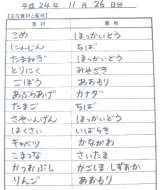 平成 24年 11月 26日分
[主な食材と産地]
食材 産地
こめ ほっかいどう
にんじん ちば
たまねぎ ほっかいどう
とりにく みやざき
ごぼう あおもり
あぶらあげ カナダ
たまご ちば
さやいんげん ほっかいどう
はくさい いばらき
キャベツ かながわ
こまつな さいたま
かつおぶし かごしま,しずおか
りんご あおもり